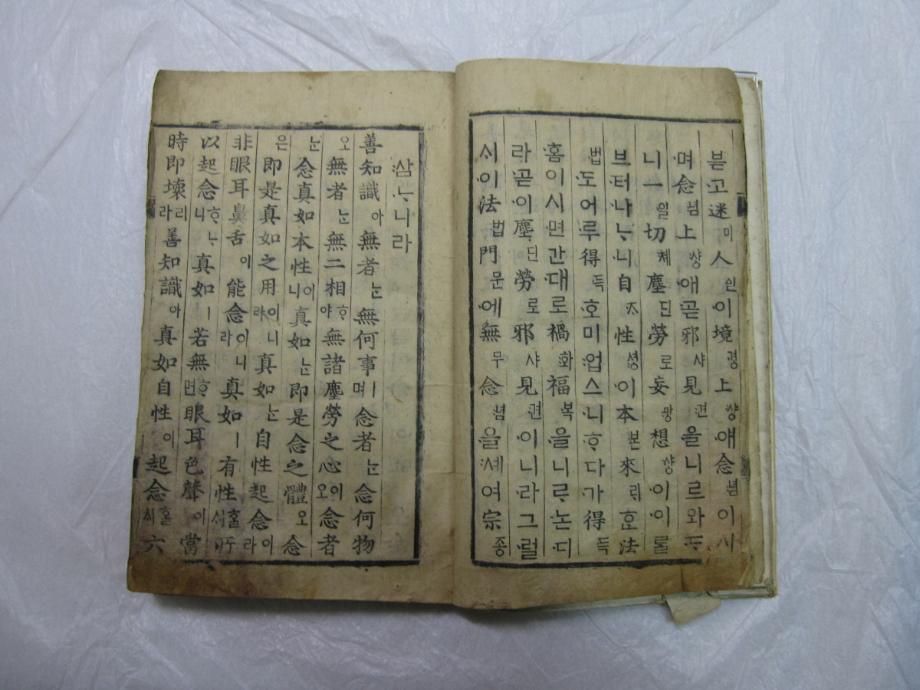 븓고迷미人인이境경上샹애念념이시
며念념上샹애곧邪샤見견을니르와ᄃᆞ
니一일切쳬塵딘勞로妄망想샹이이ᄅᆞᆯ
브터나ᄂᆞ니自ᄌᆞ性셩이本본來ᄅᆡᄒᆞᆫ法
법도어루得득호미업스니ᄒᆞ다가得득
홈이시면간대로禍화福복을니ᄅᆞ논디
라곧이塵딘勞로邪샤見견이니라그럴
ᄉᆡ이法법門문에無무念념을셰여宗종
삼ᄂᆞ니라
善知識아無者ᄂᆞᆫ無何事ㅣ며念者ᄂᆞᆫ念何物
오無者ᄂᆞᆫ無二相ᄒᆞ야無諸塵勞之心이오念者
ᄂᆞᆫ念真如本性이니真如ᄂᆞᆫ即是念之體오念
은即是真如之用이니라真如ᄂᆞᆫ自性起念이라
非眼耳鼻舌이能念이니라真如ㅣ有性ᄒᆞᆯᄉᆡ
以起念ᄒᆞᄂᆞ니真如ㅣ若無ᄒᆞ면眼耳色聲이當
時即壞리라善知識아真如自性이起念ᄒᆞᆯᄉᆡ六